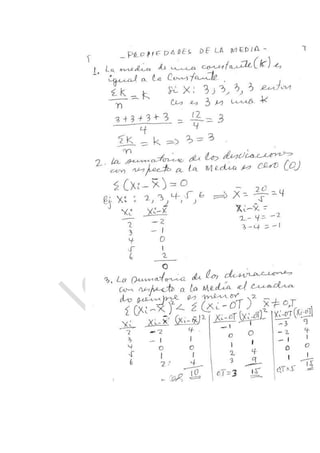 - PROPIEDADES DE LA MEDIA -
1. La media de una constante (K) es
igual a la Constante.
ΣK/n = K Si X: 3, 3, 3, 3 enton
ces es 3 es una K
3+3+3+3/4 = 12/4 = 3
ΣK/n = K => 3 = 3.
2. La sumatoria de las desviaciones
con respecto a la Media es Cero (0).
Σ(Xi-X̄) = 0
Ej Xi: 2, 3, 4, 5, 6 => X̄ = 20/5 = 4
Xi Xi-X̄ Xi-X̄=
2 -2 2-4=-2
3 -1 3-4=-1
4 0
5 1
6 2
0
3. La Sumatoria de las desviaciones
con respecto a la Media al cuadra
do siempre es menor.
Σ(Xi-X̄)² < Σ(Xi-OT)² X̄≠O.T
Xi Xi-X̄ (Xi-X̄)² Xi-OT (Xi-OT)² Xi-OT (Xi-OT)²
2 -2 4 -1 1 -3 9
3 -1 1 0 0 -2 4
4 0 0 1 1 -1 1
5 1 1 2 4 0 0
6 2 4 3 9 1 1
10 OT=3 15 OT=5 15